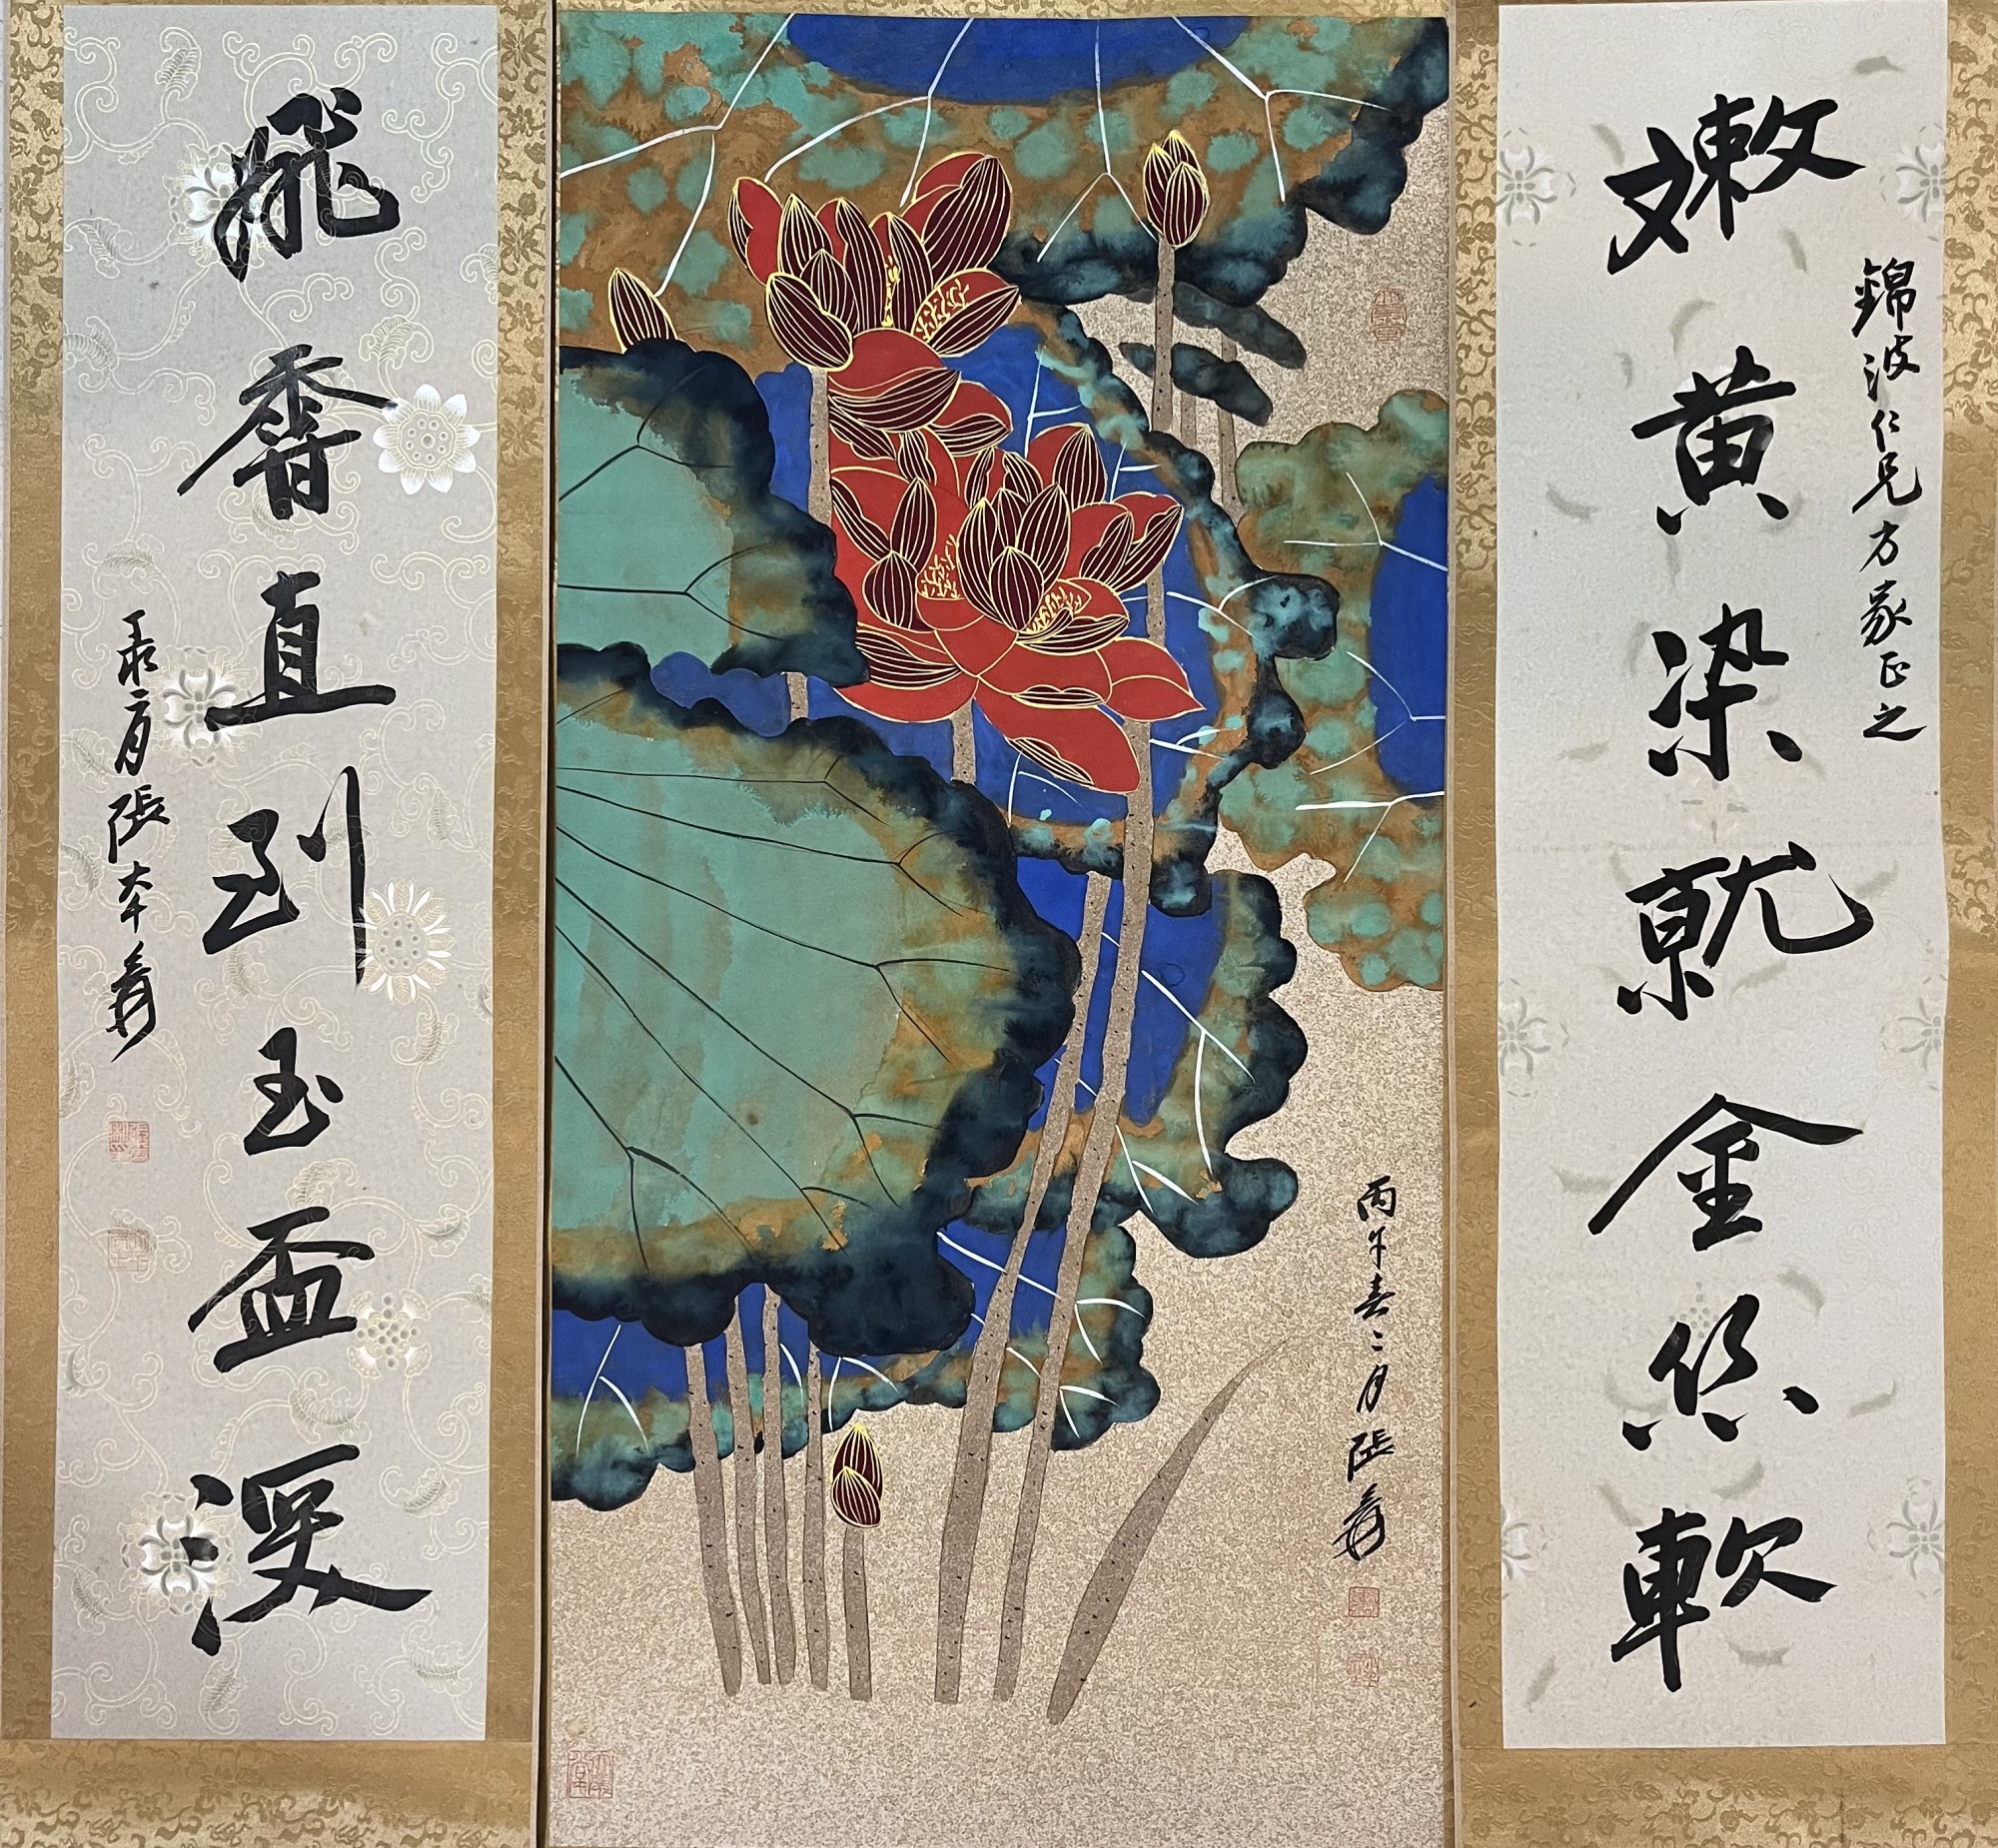 嫩黄染就金丝軟
錦波仁兄方家正之
丙午春二月張爰
飛香直到玉盃深
二月張大千爰